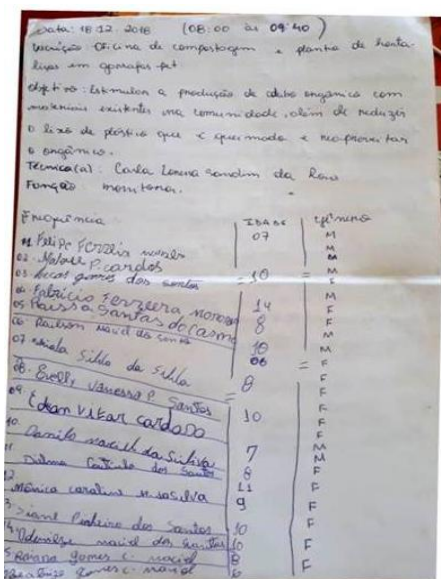 Data: 18.12.2018 (08:00 às 09:40)
Descrição: Oficina de compostagem e plantio de horta-
liças em garrafas pet
Objetivo: Estimular a produção de adubo orgânico com
materiais existentes na comunidade, além de reduzir
o lixo de plástico que é queimado e reaproveitar
o orgânico.
Técnica(a): Carla Lorena Sandim da
Função: monitora.
Frequência IDADE gênero
01. Felipe Ferreira 07 M
02. P. cardos M
03. Lucas gomes dos santos = 10 = M
04. Fabrício Ferreira 14 M
05 Raissa Santas do carmo 8 F
06 Raelson maciel dos santos 10 M
07 Silva da Silva 06 = F
08. Evelly Vanessa P. Santos = 8 F
09. Edran Vitar cardoso 10
10. Danilo maciel da Silva 7 M
11 Dilma dos Santos 8 F
12 Mônica caroline da silva 11 F
9 F
Pinheiro dos Santos 10 F
maciel dos Santos 10 F
Raiana gomes c. maciel 8 F
gomes c. maciel 6 F